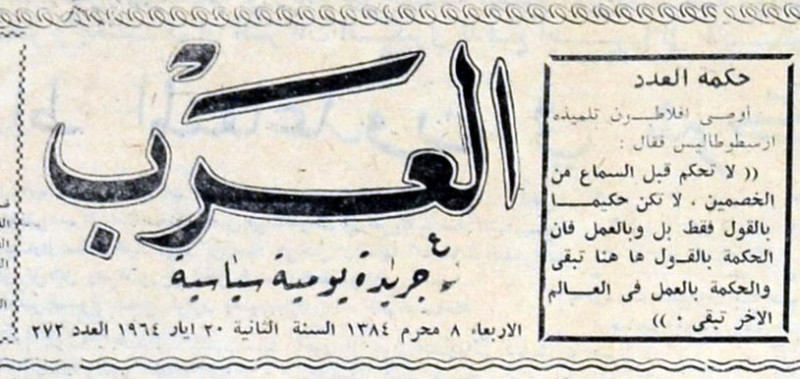 العرب
جريدة يومية سياسية
الاربعاء ٨ محرم ١٣٨٤ السنة الثانية ٢٠ ايار ١٩٦٤ العدد ٢٧٢
حكمة العدد
اوصى افلاطـــون تلميذه
ارسطوطاليس فقال :
(( لا تحكم قبل السماع من
الخصمين ، لا تكن حكيمــا
بالقول فقط بل وبالعمل فان
الحكمة بالقــول ها هنا تبقى
والحكمة بالعمل فى العــالم
الاخر تبقى ٠ ))